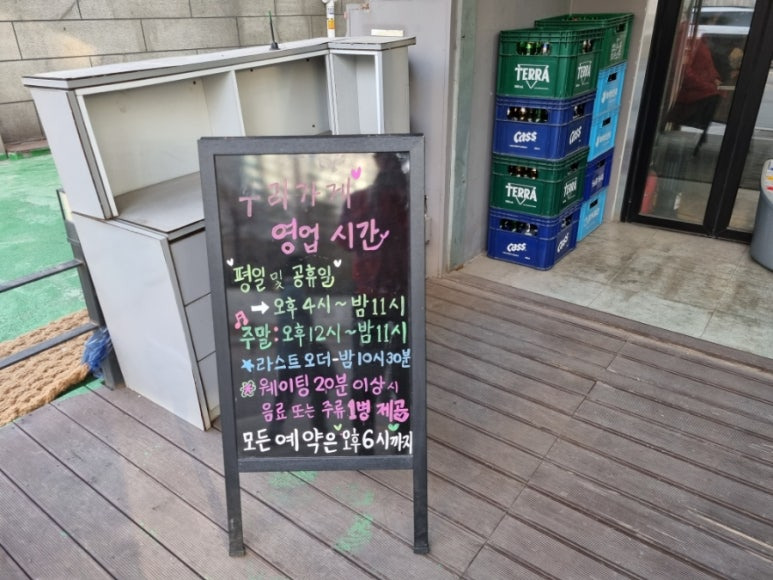 우리가게
영업 시간
평일 및 공휴일
→ 오후 4시 ~ 밤 11시
주말 : 오후 12시 ~ 밤 11시
★라스트오더 - 밤 10시 30분
웨이팅 20분 이상시
음료 또는 주류 1병 제공
모든 예약은 오후 6시까지
TERRA
CASS
TERRA
CASS